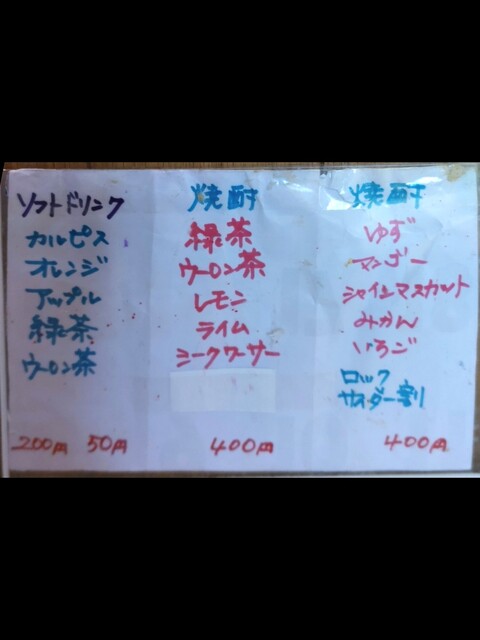 ソフトドリンク
カルピス
オレンジ
アップル
緑茶
ウーロン茶
200円 50円
焼酎
緑茶
ウーロン茶
レモン
ライム
シークワーサー
400円
焼酎
ゆず
マンゴー
シャインマスカット
みかん
いちご
ロック
サイダー割
400円